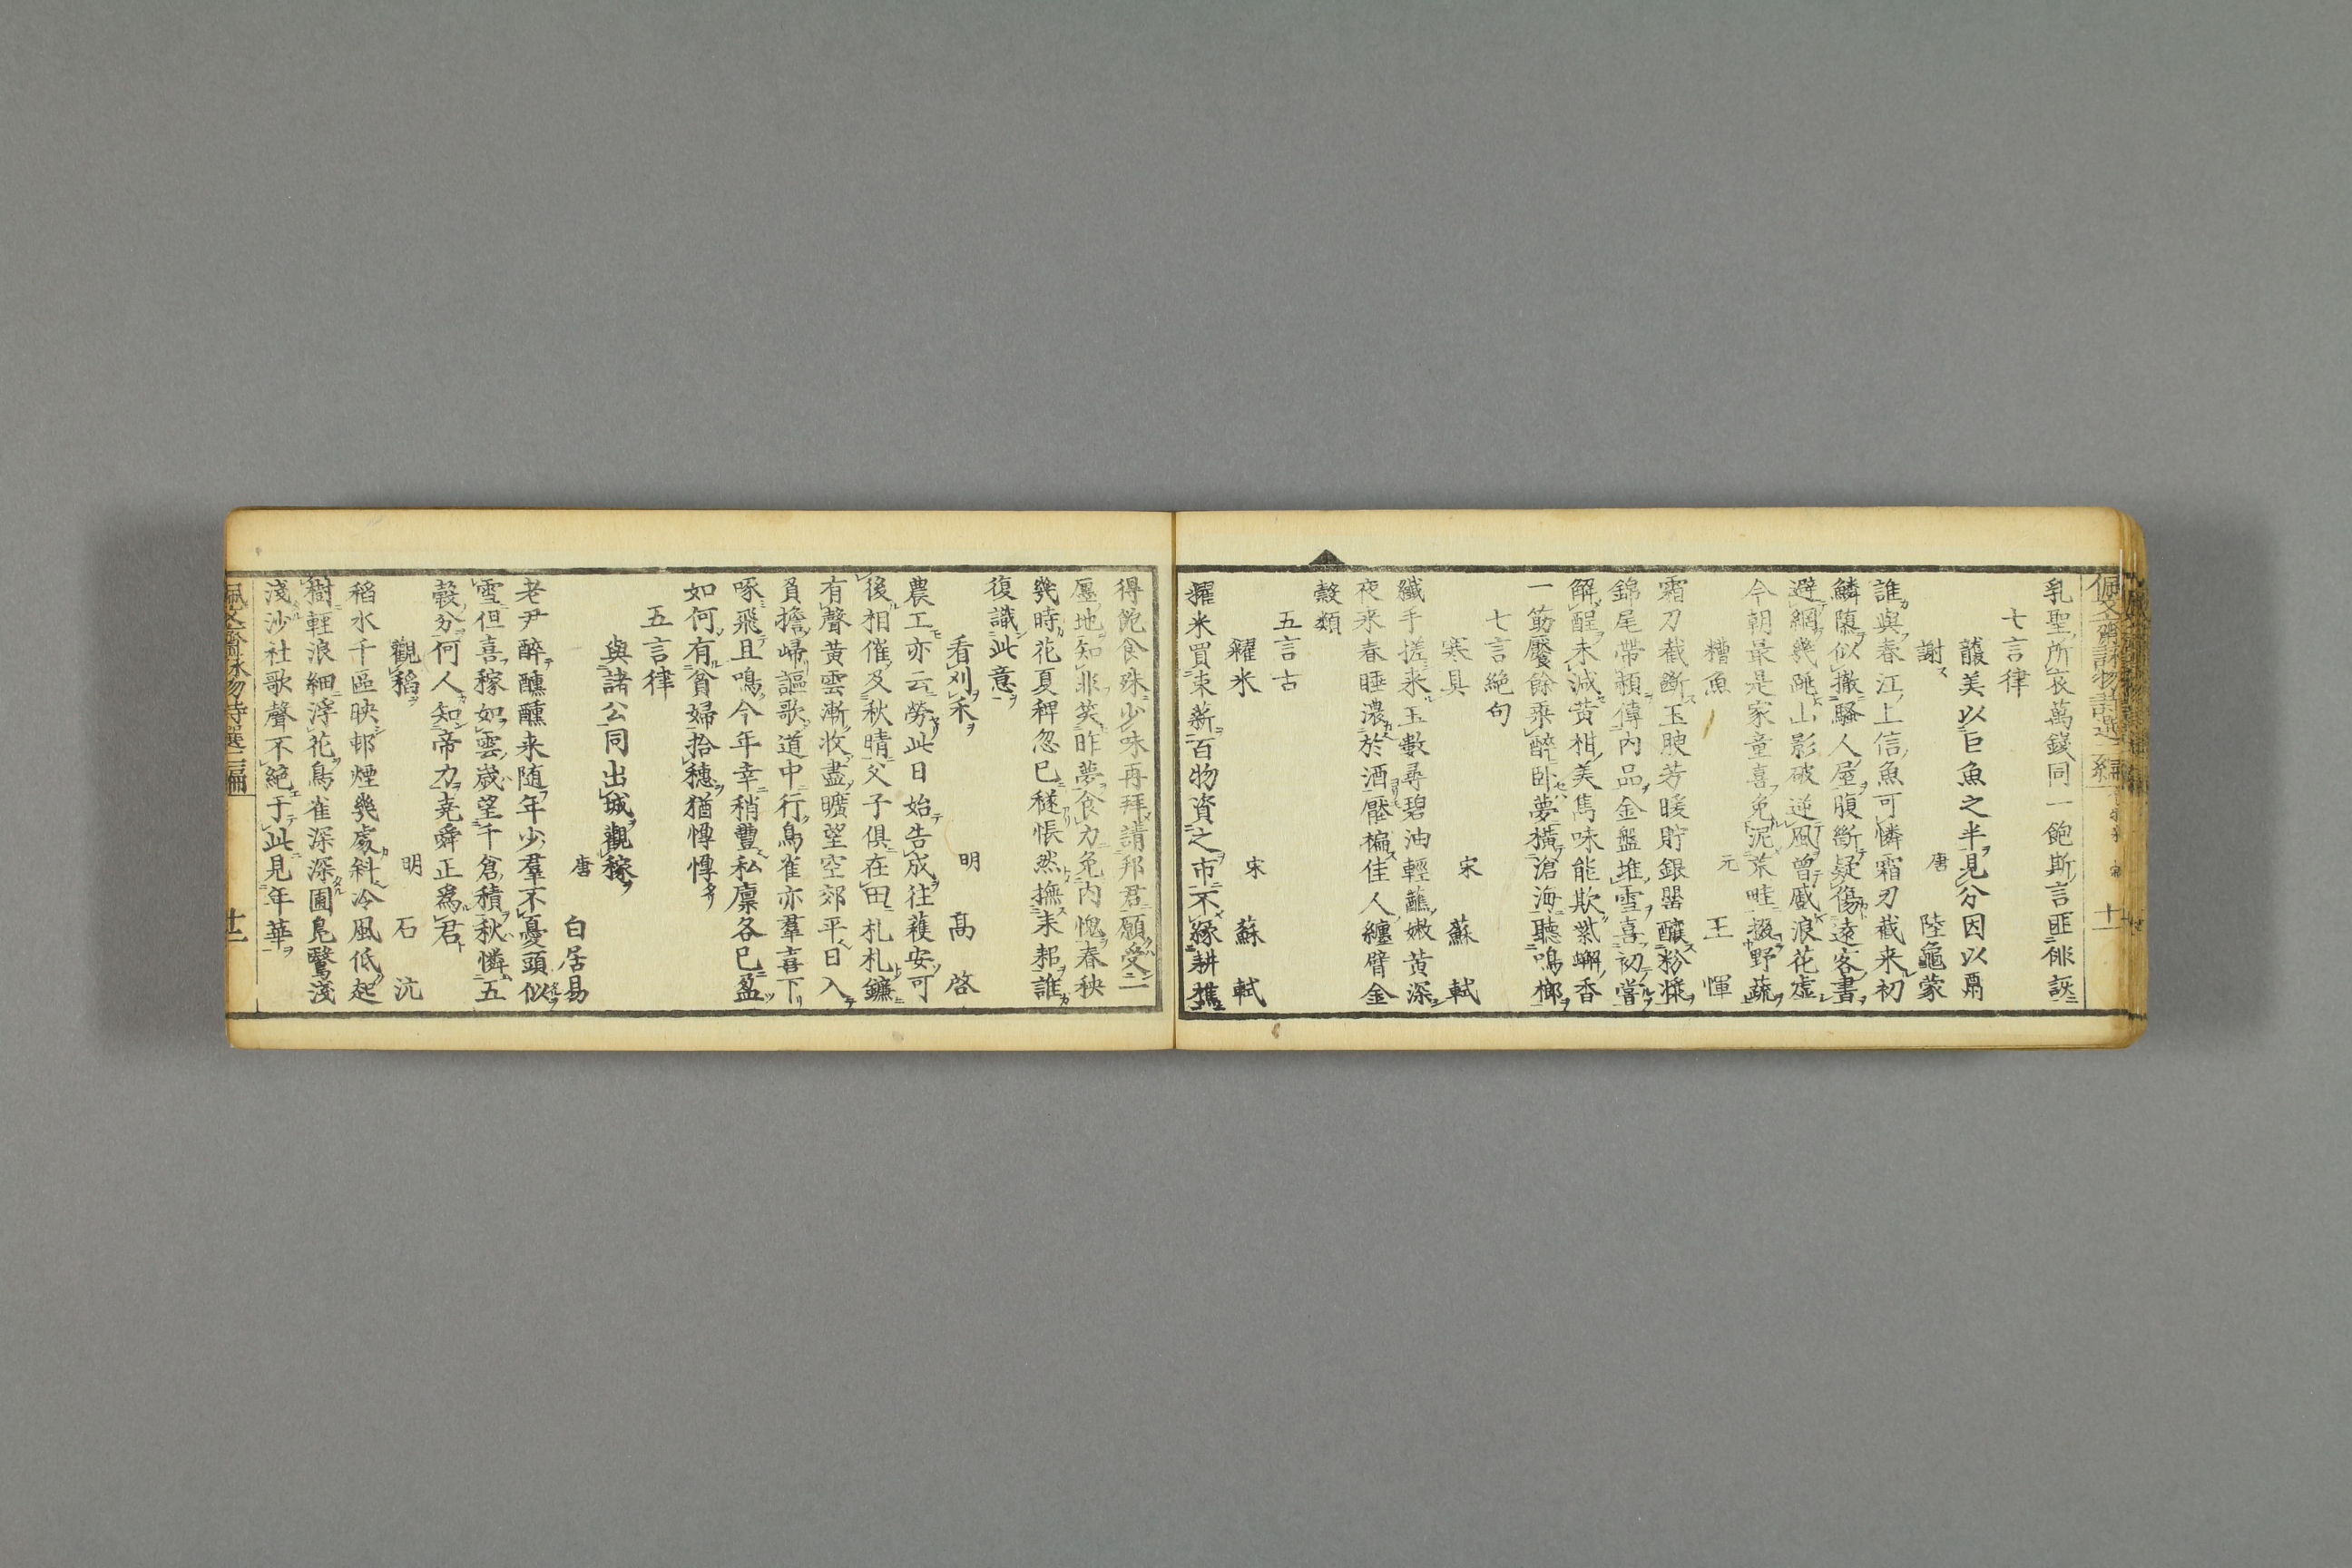 乳聖所哀萬錢同一飽斯言匪俳詼
七言律
謝
護美以巨魚之半見分因以鬲
唐 陸龜蒙
誰與春江上信魚可憐霜刃截来初
鱗隳似撒騷人屋腹斷疑傷遠客書
避網幾跳山影破逆風曽蹙浪花虛
今朝最是家童喜免泥荒畦掇野蔬
糟魚 元 王惲
霜刀截斷玉腴芳暖貯銀罌釀粉漿
錦尾帶頳傳内品金盤堆雪喜初嘗
解酲未減黄柑美雋味能欺紫蠏香
一筯饜餘乗醉卧夢横滄海聽鳴榔
七言絶句
寒具 宋 蘇軾
纖手搓来玉數尋碧油輕蘸嫩黄深
夜来春睡濃於酒壓褊佳人纏臂金
穀類
五言古
糴米 宋 蘇軾
糴米買束薪百物資之市不緣耕樵
得飽食殊少味再拜請邦君願受一
廛地知非笑昨夢食力免内愧春秧
幾時花夏稗忽已穟悵然撫耒耜誰
復識此意
看刈禾 明 髙啓
農工亦云勞此日始告成往穫安可
後相催及秋晴父子俱在田札札鐮
有聲黄雲漸收盡曠望空郊平日入
負擔歸謳歌道中行鳥雀亦羣喜下
啄飛且鳴今年幸稍豐私廪各已盈
如何有貧婦拾穗猶惸惸
五言律
與諸公同出城觀稼
唐 白居易
老尹醉醺醺来随年少羣不憂頭似
雪但喜稼如雲歳望千倉積秋憐五
穀分何人知帝力堯舜正爲君
觀稻 明 石沆
稻水千區映邨煙幾處斜冷風低起
樹輕浪細浮花鳥雀深深圃鳧鷖淺
淺沙社歌聲不絶于此見年華
佩文齋詠物詩選二編